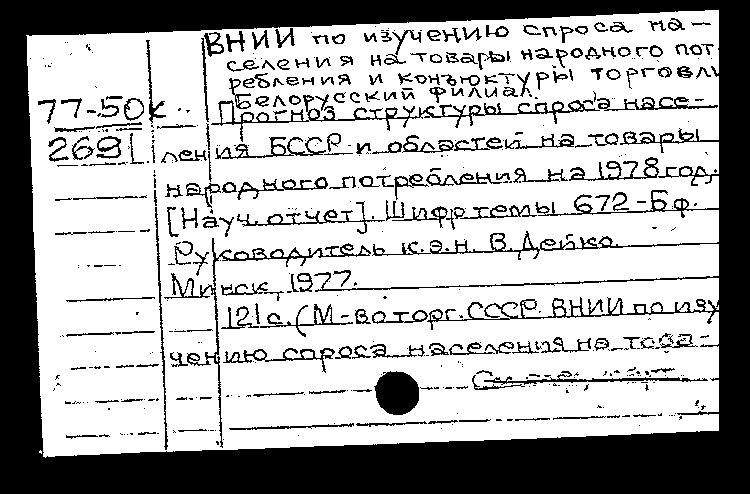 ВНИИ по изучению спроса на-
селения на товары народного пот
ребления и конъюктуры торговли
Белорусский филиал.
77-50к Прогноз структуры спроса насе-
2691 ления БССР и областей на товары
народного потребления на 1978 год.
[Науч. отчет]. Шифр темы 672-Бф.
Руководитель к.э.н. В. Дейко.
Минск, 1977.
121с. (М-во торг. СССР. ВНИИ по изу
чению спроса населения на това-